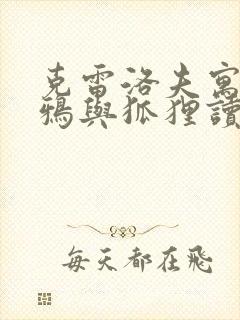 克雷洛夫寓
鴉與狐狸讀
每天都在飛